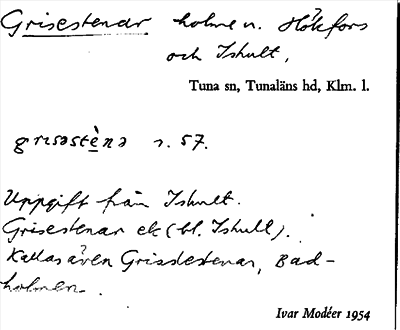 Grisestenar holme n. Hökfors
och Ishult,
Tuna sn, Tunaläns hd, Klm. l.
grisəstènə s. 57.
Uppgift från Ishult.
Grisestenar ek (bl. Ishult).
Kallas även Grisslestenar, Bad-
holmen.
Ivar Modéer 1954